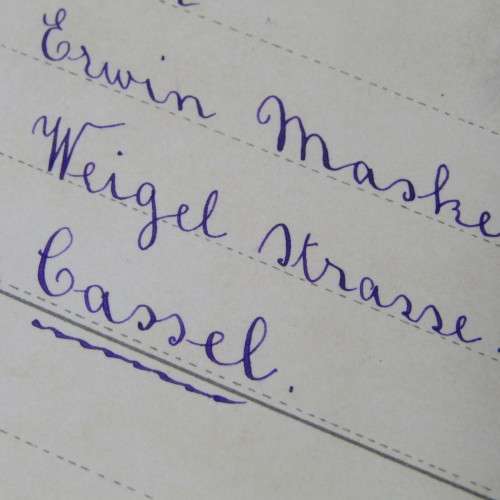 Erwin Maske
Weigel Strasse.
Cassel.